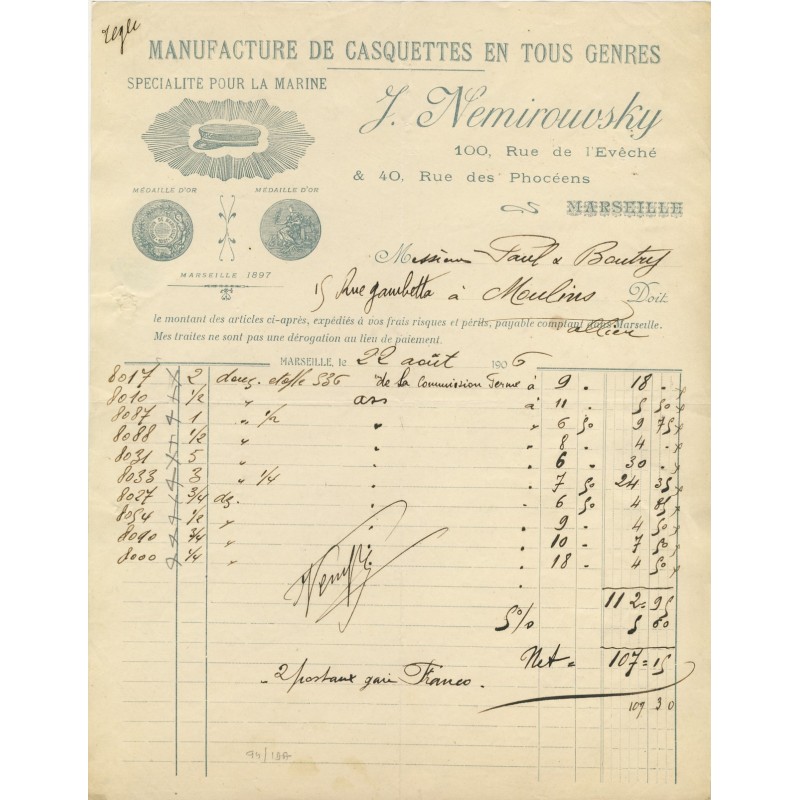 MANUFACTURE DE CASQUETTES EN TOUS GENRES
SPÉCIALITÉ POUR LA MARINE
J. Nemirouvsky
100, Rue de l'Evêché
& 40, Rue des Phocéens
MARSEILLE
MÉDAILLE D'OR MÉDAILLE D'OR
MARSEILLE 1897
Messieurs Paul & Boutry
15 Rue gambetta à Moulins Doit
allier
le montant des articles ci-après, expédiés à vos frais risques et périls, payable comptant dans Marseille.
Mes traites ne sont pas une dérogation au lieu de paiement.
MARSEILLE, le 22 août 1906
8017 2 536 de la Commission Ferme à 9 . 18 .
8010 1/2 " ass à 11 . 5 50
8087 1 " 1/2 " " 6 50 9 75
8088 1/2 " 8 . 4 .
8031 5 " 6 . 30 .
8033 3 " 1/4 7 50 24 35
8027 3/4 dz. 6 50 4 85
8054 1/2 " 9 . 4 50
8090 3/4 " 10 . 7 50
8000 1/4 " 18 . 4 50
112 = 95
5 % 5 60
Net = 107 = 15
2 postaux gare Franco.
109 30
94/18A